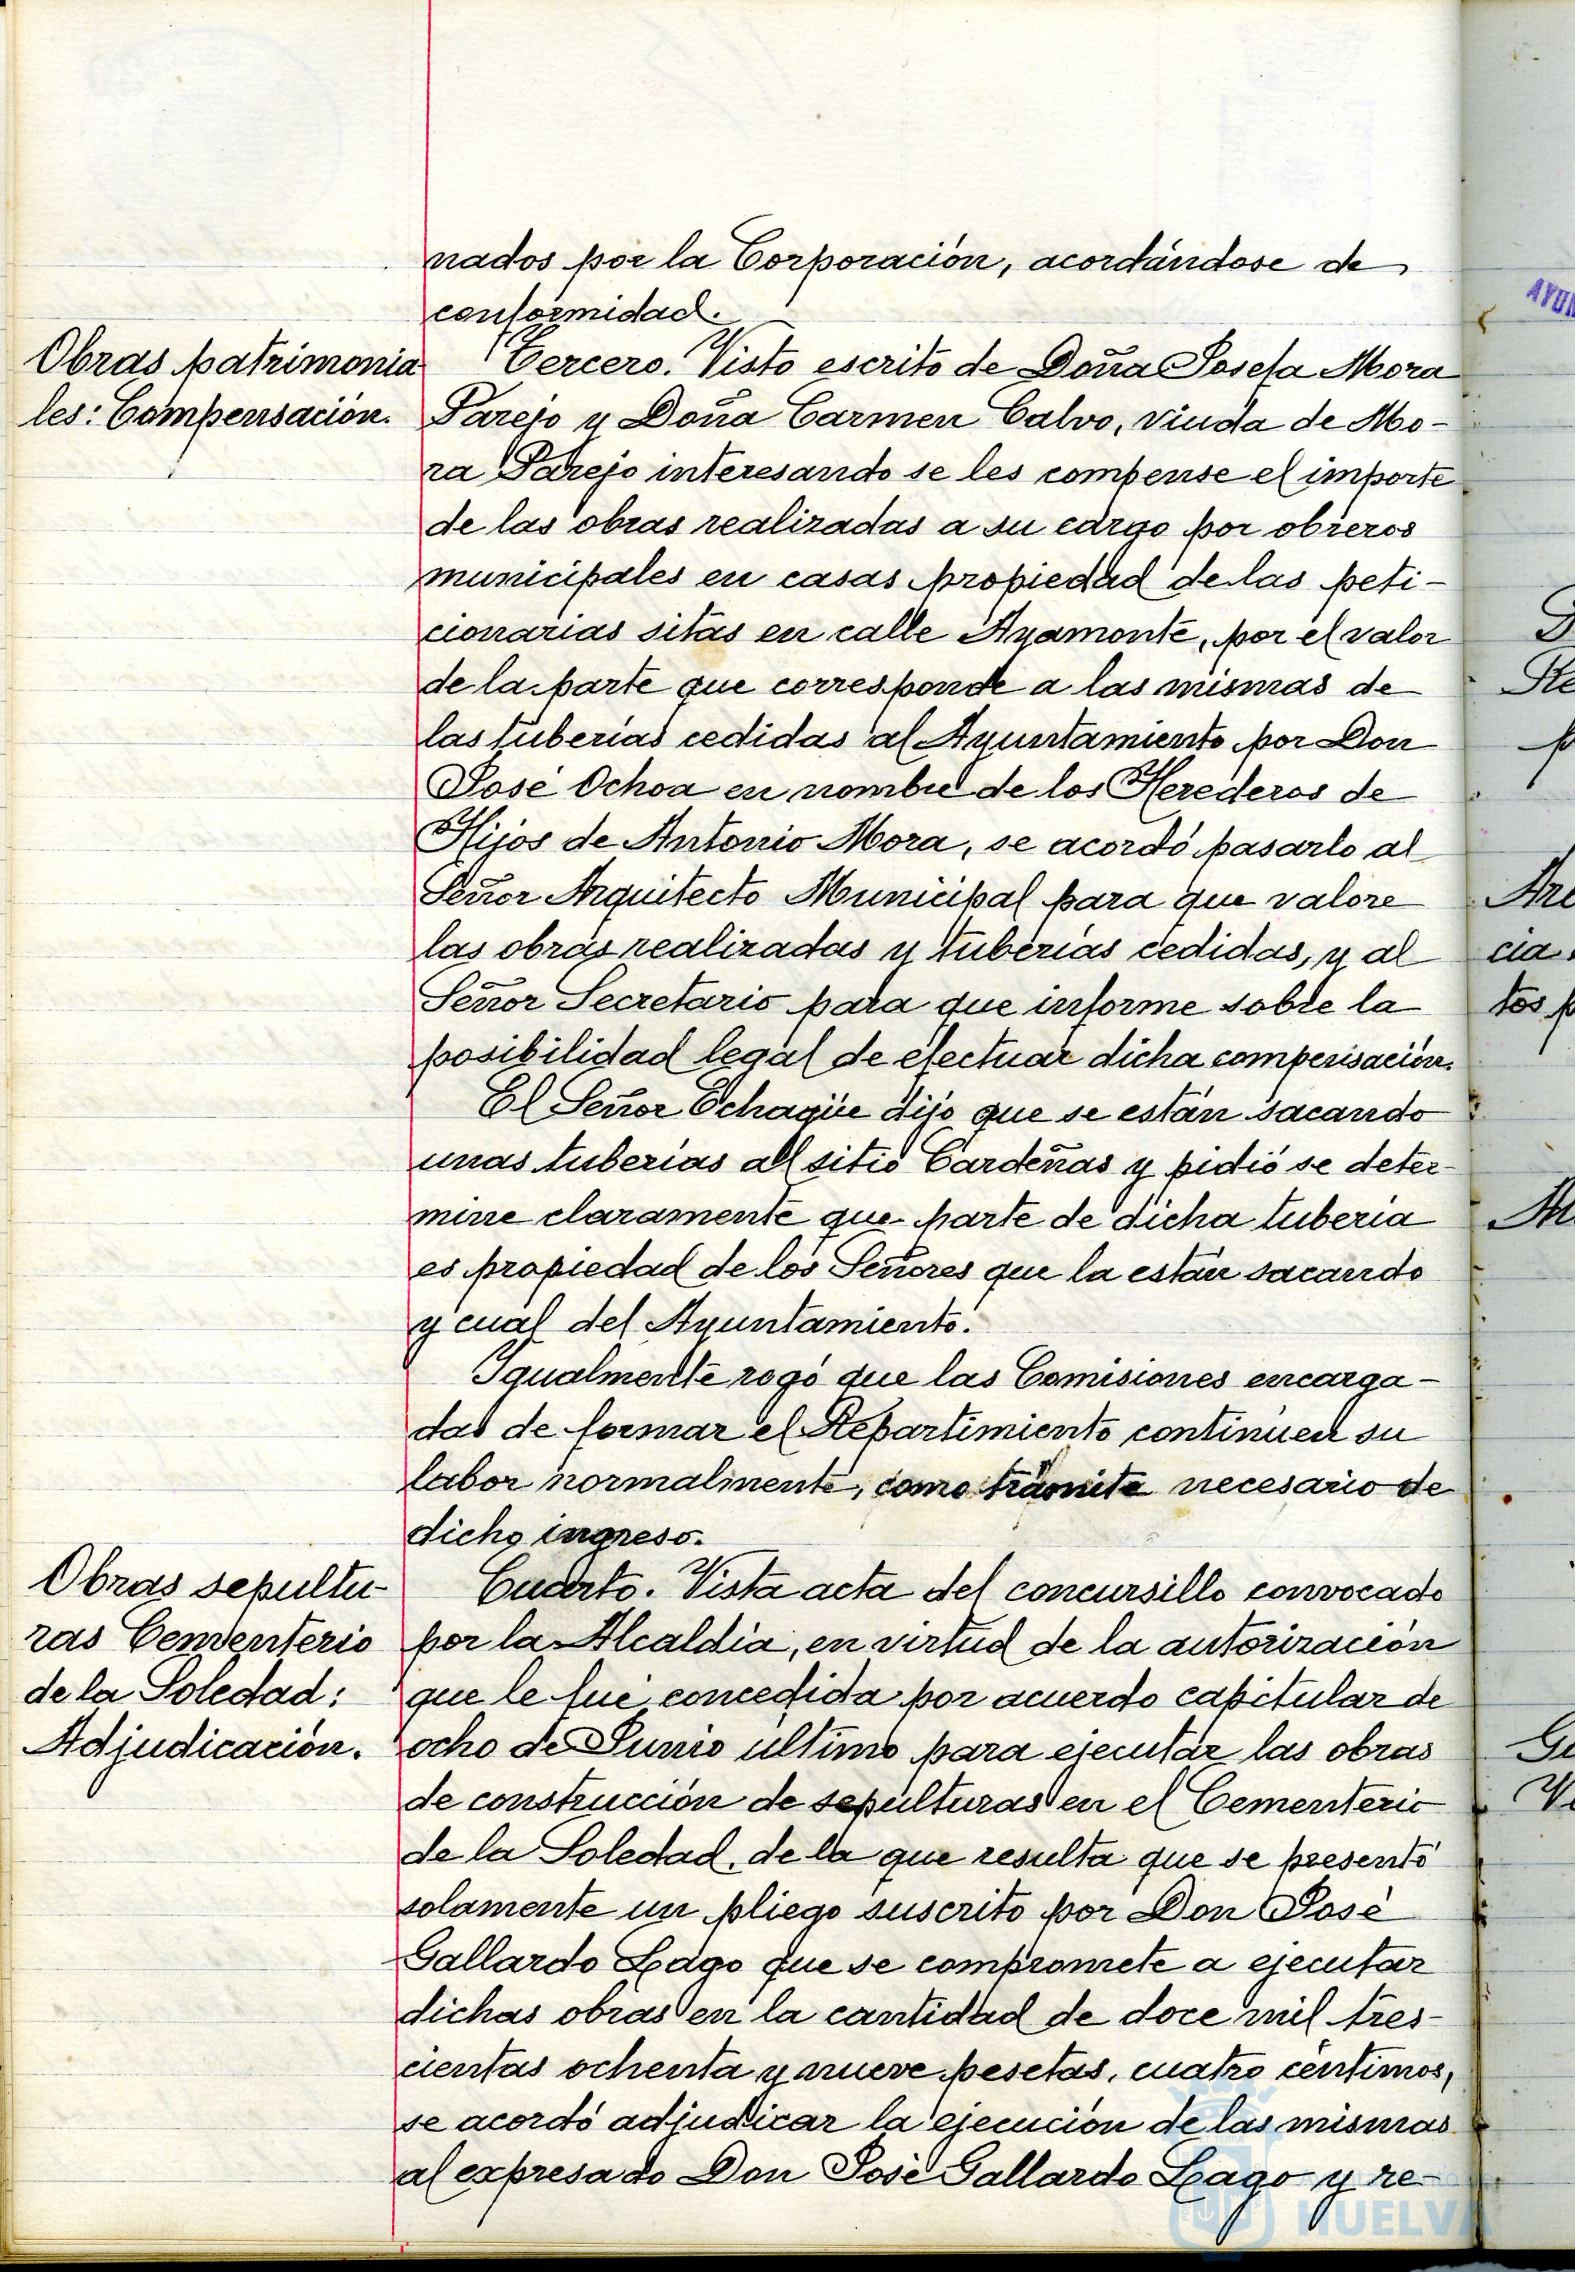 nados por la Corporación, acordándose de
conformidad.
Obras patrimonia
les: Compensación.
Tercero. Visto escrito de Doña Josefa Mora
Parejo y Doña Carmen Calvo, viuda de Mo-
ra Parejo interesando se les compense el importe
de las obras realizadas a su cargo por obreros
municipales en casas propiedad de las peti-
cionarias sitas en calle Ayamonte, por el valor
de la parte que corresponde a las mismas de
las tuberías cedidas al Ayuntamiento por Don
José Ochoa en nombre de los Herederos de
Hijos de Antonio Mora, se acordó pasarlo al
Señor Arquitecto Municipal para que valore
las obras realizadas y tuberías cedidas, y al
Señor Secretario para que informe sobre la
posibilidad legal de efectuar dicha compensación.
El Señor Echagüe dijo que se están sacando
unas tuberías al sitio Cardeñas y pidió se deter-
mine claramente que parte de dicha tubería
es propiedad de los Señores que la están sacando
y cual del Ayuntamiento.
Igualmente rogó que las Comisiones encarga-
das de formar el Repartimiento continúen su
labor normalmente, como trámite necesario de
dicho ingreso.
Obras sepultu-
ras Cementerio
de la Soledad:
Adjudicación.
Cuarto. Vista acta del concursillo convocado
por la Alcaldía, en virtud de la autorización
que le fué concedida por acuerdo capitular de
ocho de Junio último para ejecutar las obras
de construcción de sepulturas en el Cementerio
de la Soledad, de la que resulta que se presentó
solamente un pliego suscrito por Don José
Gallardo Lago que se compromete a ejecutar
dichas obras en la cantidad de doce mil tres-
cientas ochenta y nueve pesetas, cuatro céntimos,
se acordó adjudicar la ejecución de las mismas
al expresado Don José Gallardo Lago y re-
HUELVA